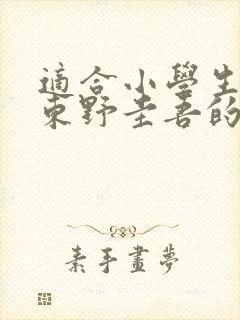 適合小學生
東野圭吾的
素手畫夢